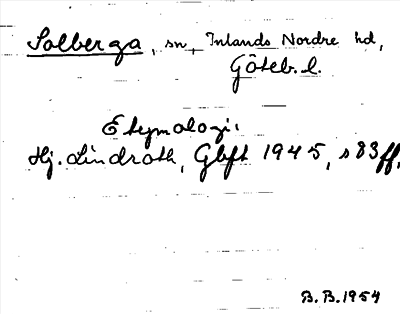 Solberga, sn, Inlands Nordre hd,
Göteb. l.
Etymologi:
Hj. Lindroth, Gbft 1945, s 83 ff.
B. B. 1954